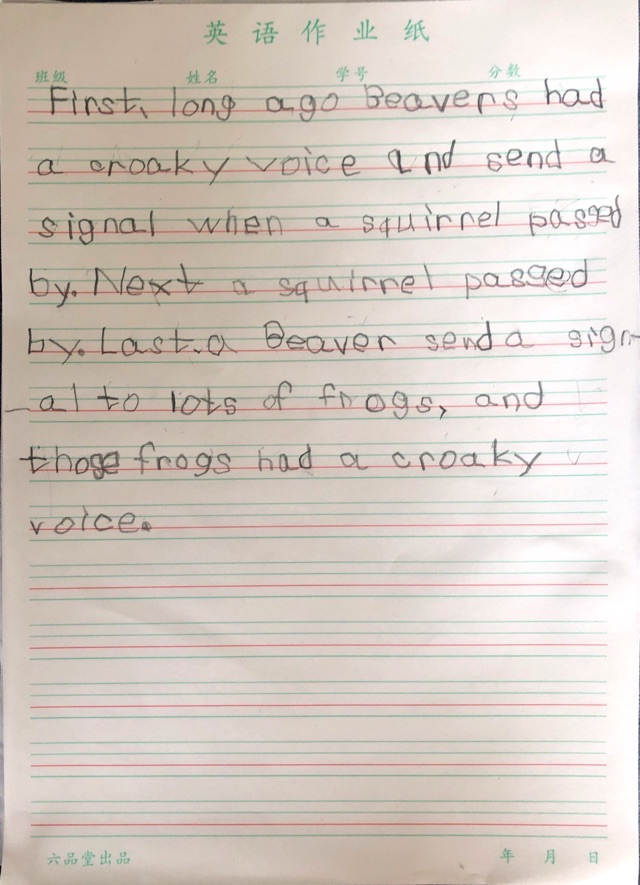 英语作业纸
班级 姓名 学号 分数
First, long ago Beavers had
a croaky voice and send a
signal when a squirrel passed
by. Next a squirrel passed
by. Last, a Beaver send a sign-
al to lots of frogs, and
those frogs had a croaky
voice.
六品堂出品 年 月 日